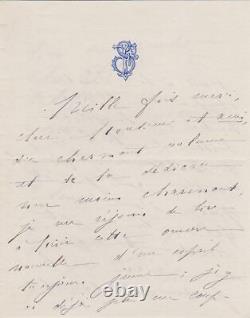 Mille fois merci,
cher Monsieur et ami,
du charmant volume
et de la dédicace
non moins charmant,
je me réjouis de lire
à loisir cette œuvre
nouvelle d'un esprit
toujours jeune; j'y
ai déjà jeté un coup-